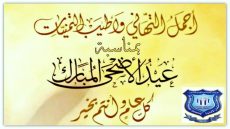 أجمل التهاني وأطيب التمنيات
بمناسبة
عيد الأضحى المبارك
كل عام وأنتم بخير